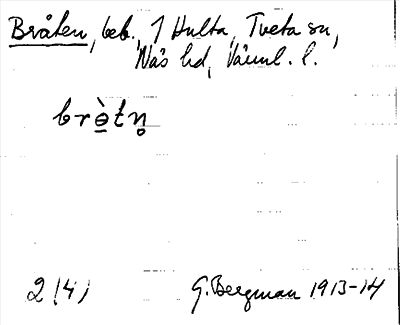 Bråten, beb., 1 Hulta, Tveta sn,
Näs hd, Värml. l.
brə̱̀tn̥
2 (4)
G. Bergman 1913-14